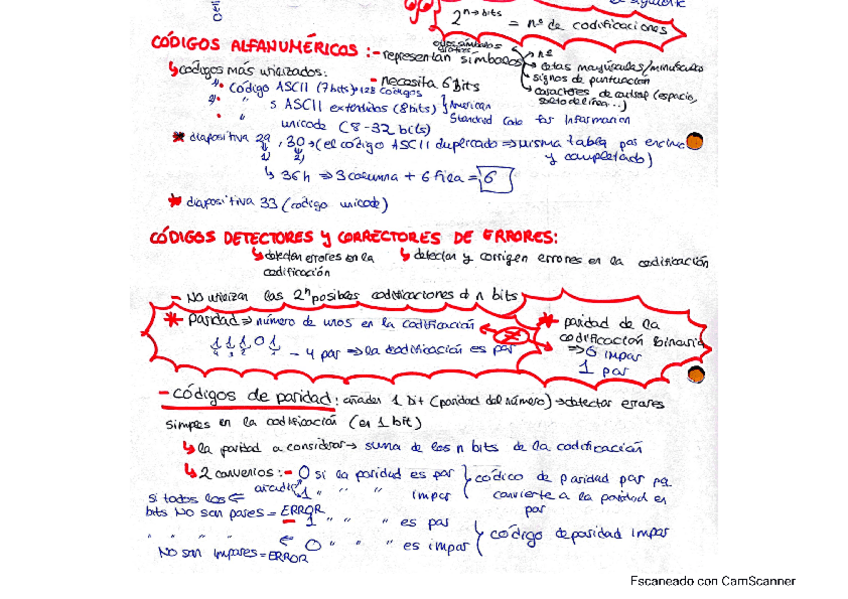 2^n → bits = nº de codificaciones
CÓDIGOS ALFANUMÉRICOS : - representan símbolos
nº
letras mayúsculas/minúsculas
signos de puntuación
caracteres de control (espacio,
salto de línea...)
↳ códigos más utilizados: - necesita 6 bits
Código ASCII (7 bits) → 128 códigos
" s ASCII extendidos (8 bits) } American
Standard Code for Information
" unicode (8-32 bits)
* diapositiva 29, 30 → (el código ASCII duplicado ⇒ misma tabla por encima
1) 2) y completado)
↳ 36h ⇒ 3 columna + 6 fila = 6
* diapositiva 33 (código unicode)
CÓDIGOS DETECTORES Y CORRECTORES DE ERRORES:
↳ detectan errores en la ↳ detectan y corrigen errores en la codificación
codificación
- No utilizan las 2^n posibles codificaciones d n bits
* paridad ⇒ número de unos en la codificación
1 1 1 0 1 - 4 par ⇒ la codificación es par
1 2 3 4
≠
* paridad de la
codificación binaria
⇒ 0 impar
1 par
- códigos de paridad: añaden 1 bit (paridad del número) → detectar errores
simples en la codificación (en 1 bit)
↳ la paridad a considerar → suma de los n bits de la codificación
↳ 2 convenios: - 0 si la paridad es par } códico de paridad par pq
añadir 1 " " " impar convierte a la paridad en
par
si todos los ⇐
bits NO son pares = ERROR
- 1 " " " es par } código de paridad impar
" " " " ⇐ 0 " " " es impar
NO son impares = ERROR
Escaneado con CamScanner